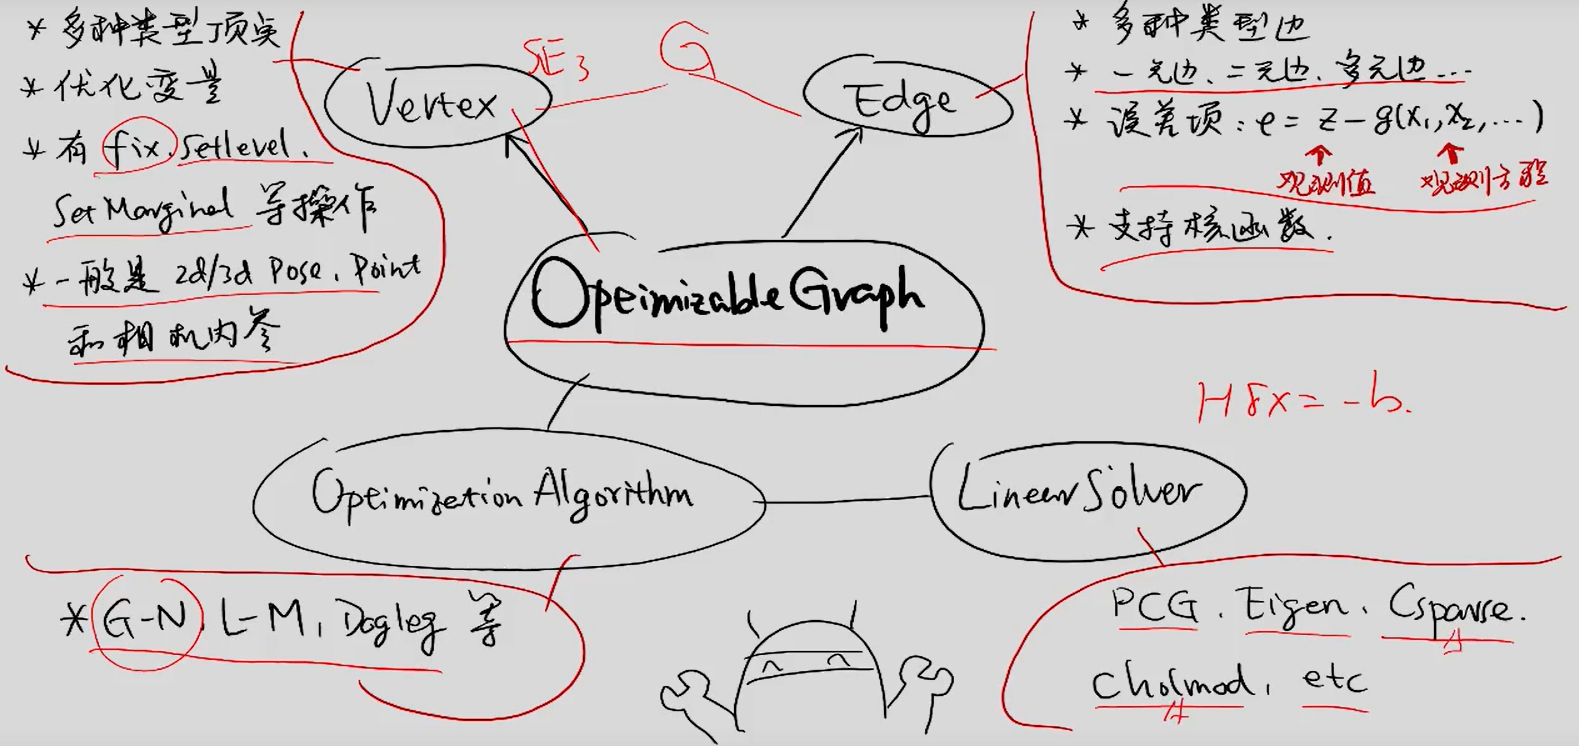 * 多种类型顶点
* 优化变量
* 有 fix, Setlevel,
SetMarginal 等操作
* 一般是 2d/3d Pose, Point
和相机内参
Vertex
SE3
G
Edge
* 多种类型边
* 一元边、二元边、多元边...
* 误差项: e = z - g(x₁, x₂, ...)
观测值
观测方程
* 支持核函数.
Opeimizable Graph
Hδx = -b.
Opeimization Algorithm
Linear Solver
* G-N, L-M, Dogleg 等
PCG, Eigen, Csparse.
Cholmod, etc